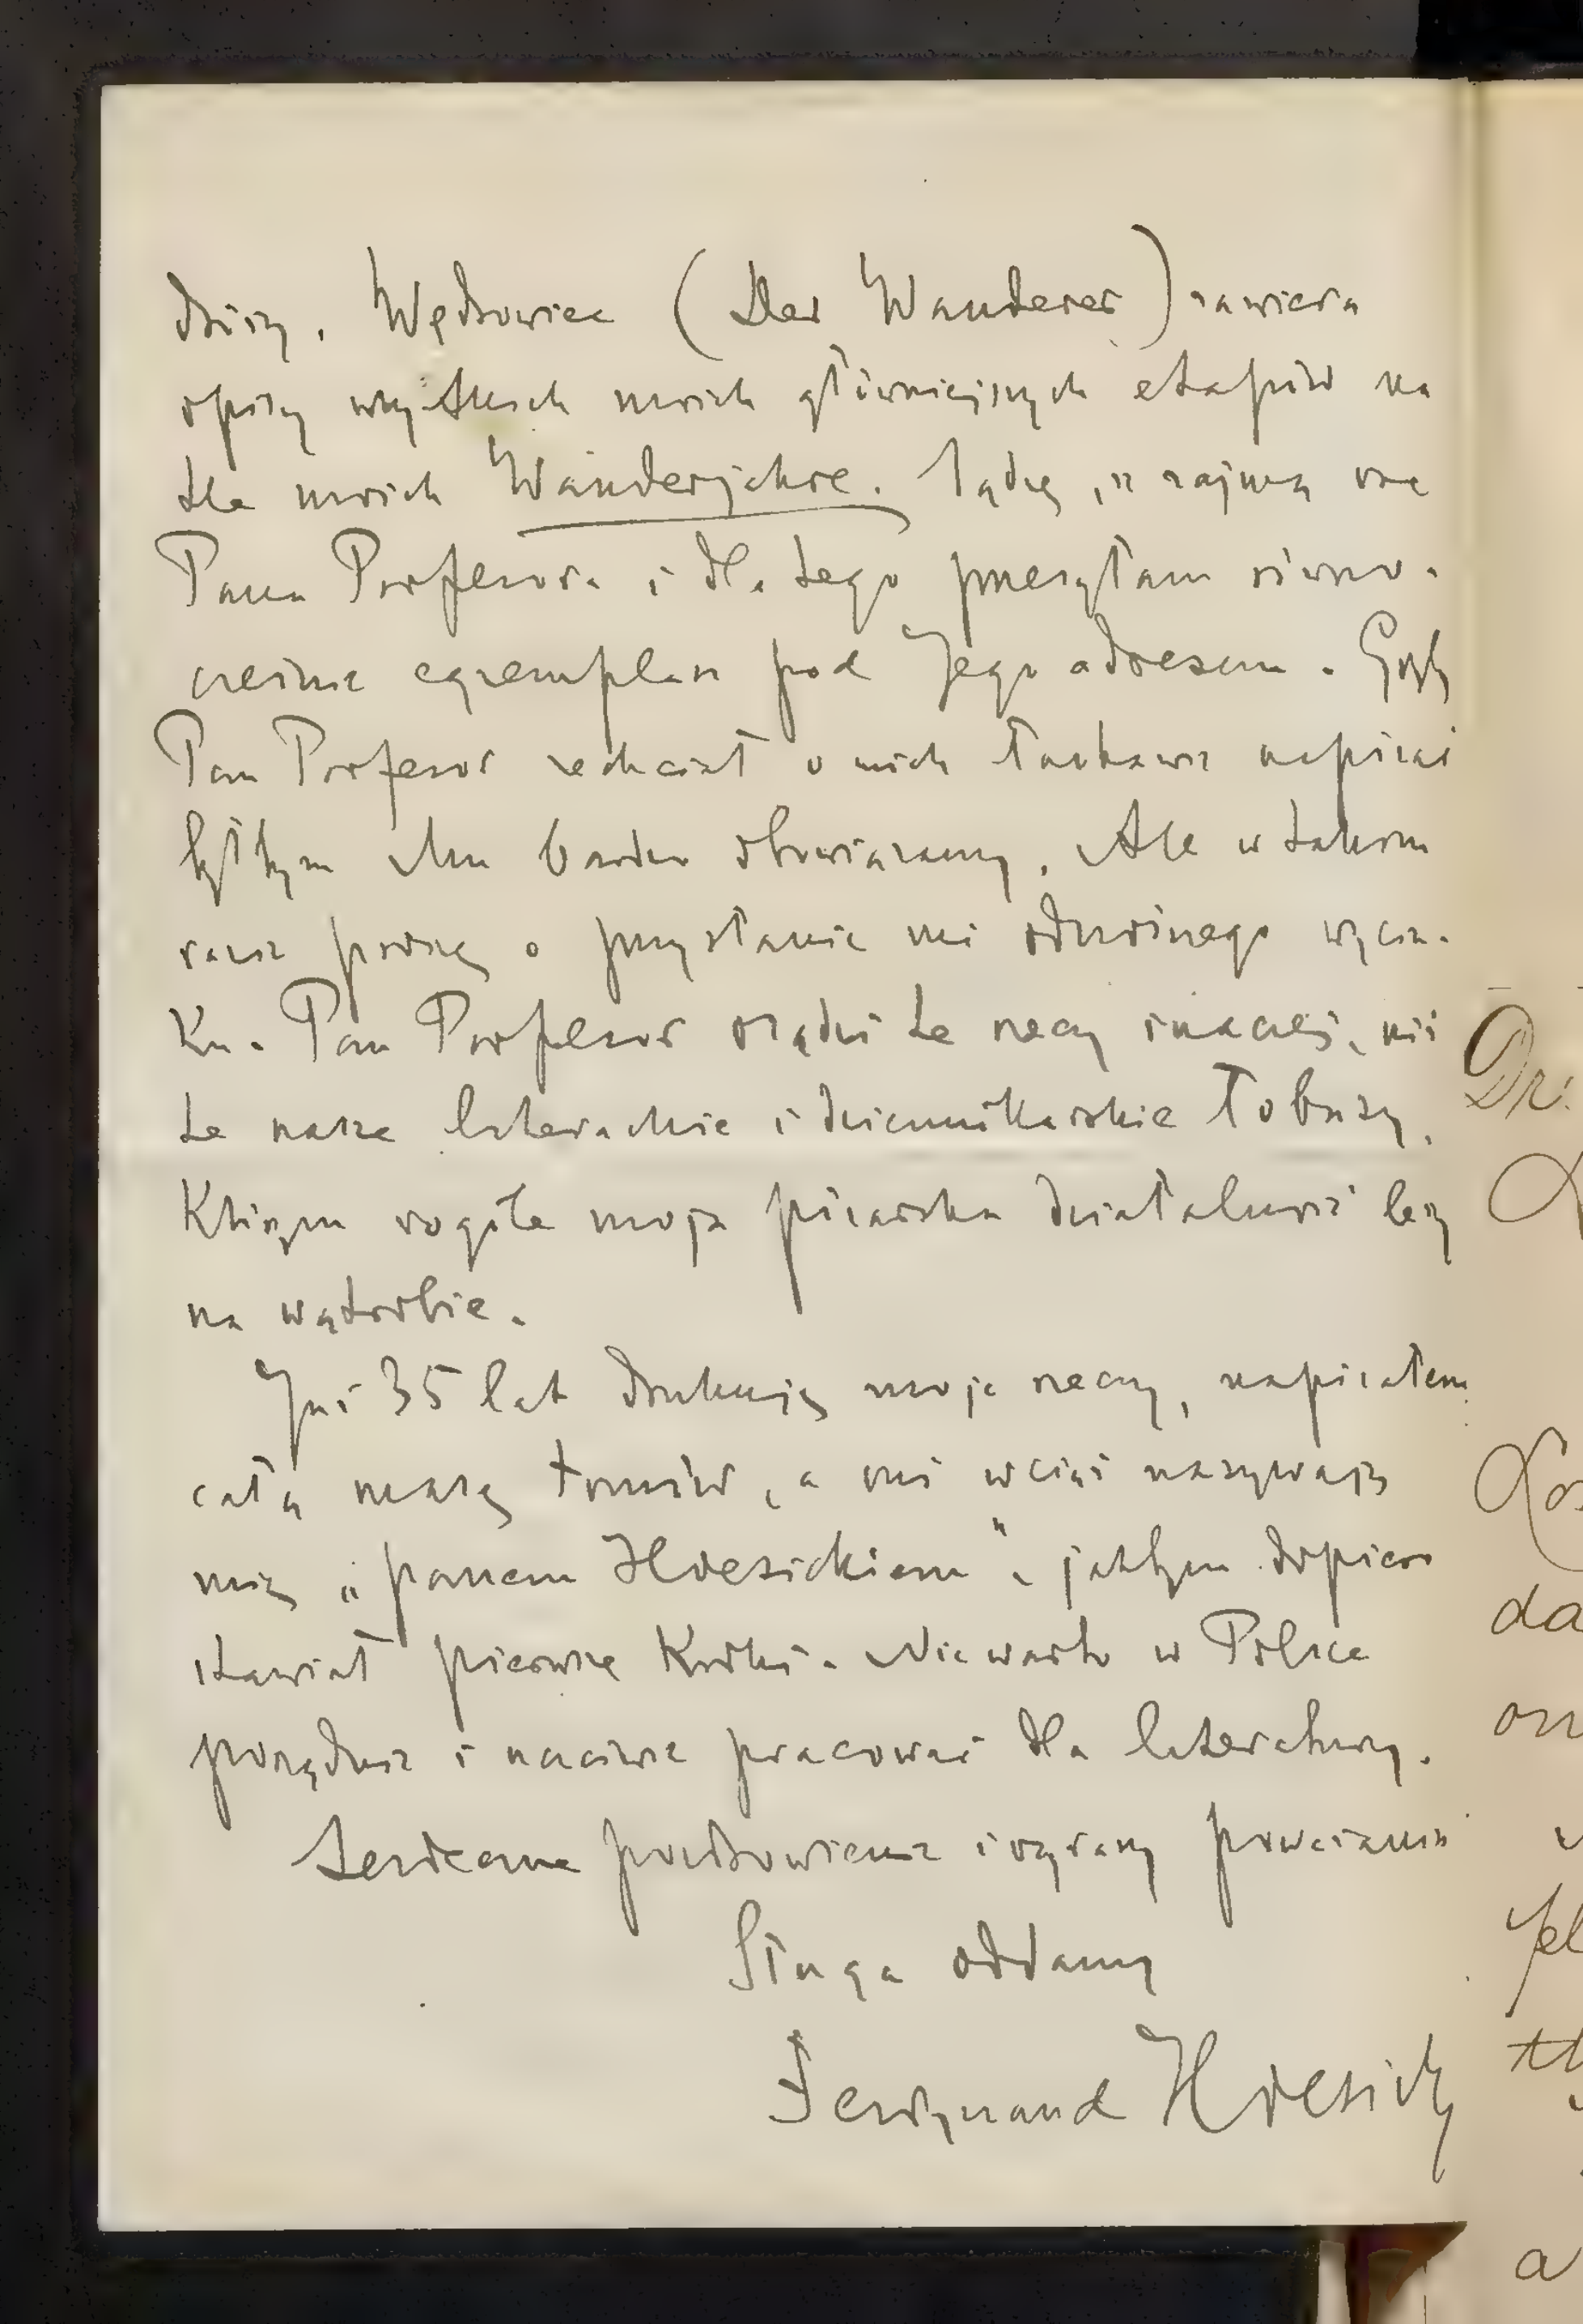 dziszy. Wędrowiec (Der Wanderer) zawiera
opisy wszystkich moich główniejszych etapów na
tle moich Wanderjahre. Sądzę, iż zajmą one
Pana Profesora i dla tego przesyłam równo-
cześnie egzemplarz pod Jego adresem. Gdyby
Pan Profesor zechciał o nich łaskawie napisać
byłbym Mu bardzo obowiązany. Ale w takim
razie proszę o przysłanie mi odnośnego wycin-
ku. Pan Profesor osądzi te rzeczy inaczej, niż
te nasze literackie i dziennikarskie łobuzy,
którym wogóle moja pisarska działalność leży
na wątrobie.
Już 35 lat drukuję moje rzeczy, napisałem
całą masę tomów, a oni wciąż nazywają
mię „panem Hoesickiem", jakbym dopiero
stawiał pierwsze kroki. Nie warto w Polsce
porządnie i uczciwie pracować dla literatury.
Serdeczne pozdrowienia i wyrazy poważania
Sługa oddany
Ferdynand Hoesick
Dr.
da
a